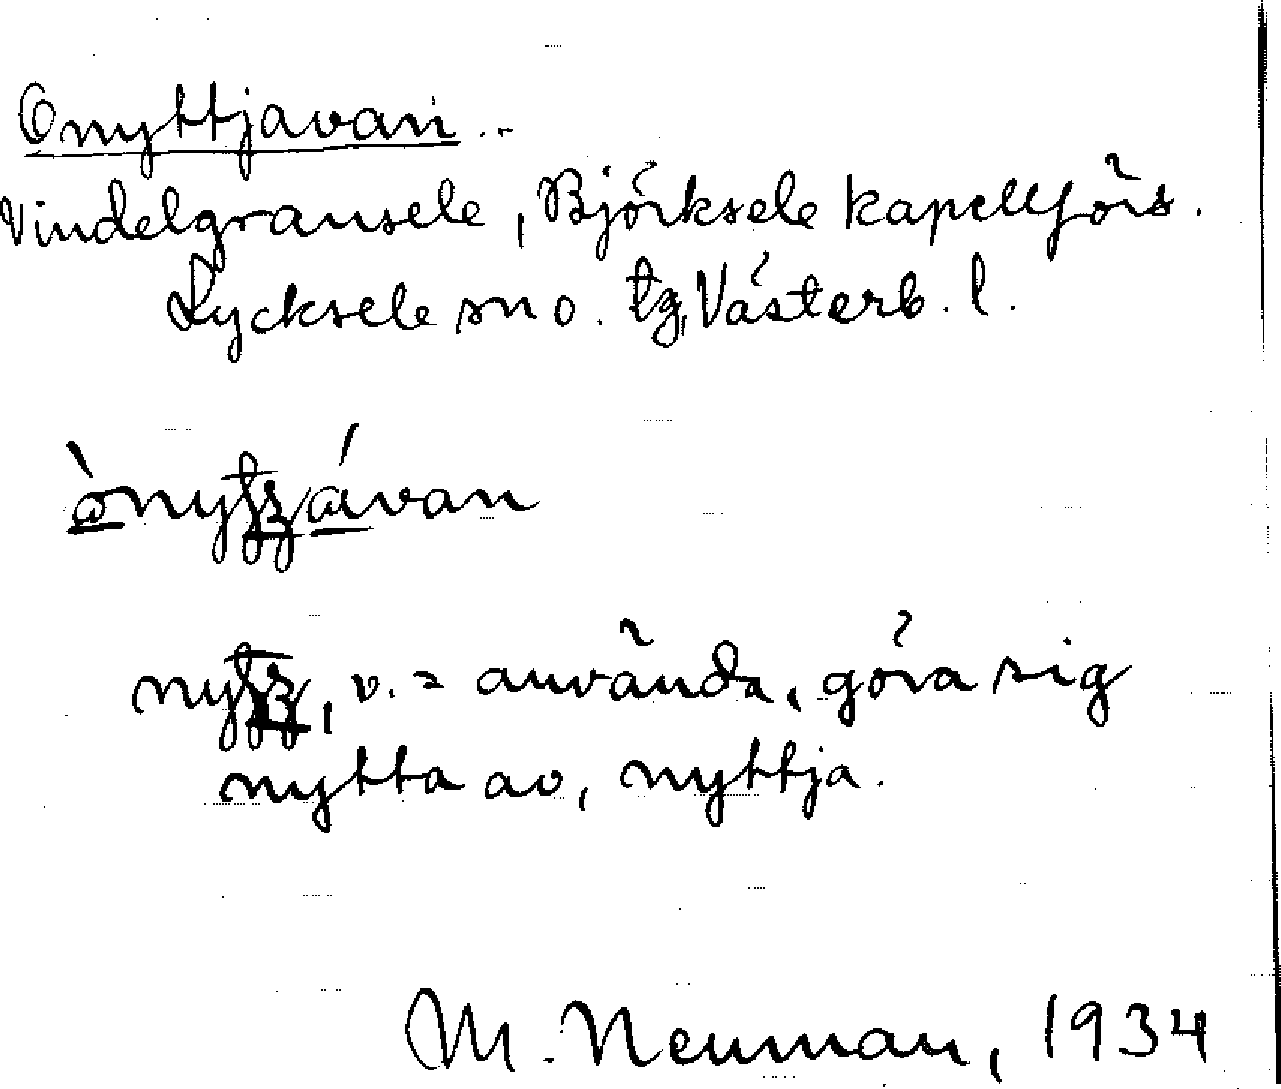 Onyttjavan
Vindelgransele, Björksele kapellförs.
Lycksele sn o. tg, Västerb. l.
v. = använda, göra sig
nytta av, nyttja.
M. Neuman, 1934